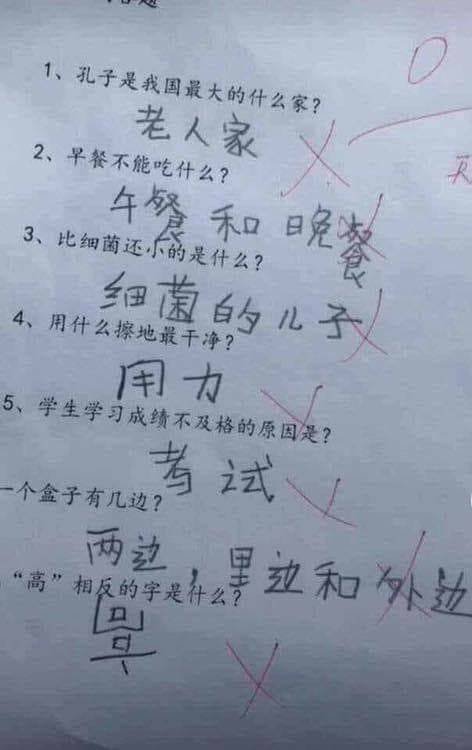 答题
1、孔子是我国最大的什么家?
老人家
2、早餐不能吃什么?
午餐和晚餐
3、比细菌还小的是什么?
细菌的儿子
4、用什么擦地最干净?
用力
5、学生学习成绩不及格的原因是?
考试
一个盒子有几边?
两边,里边和外边
“高”相反的字是什么?
0